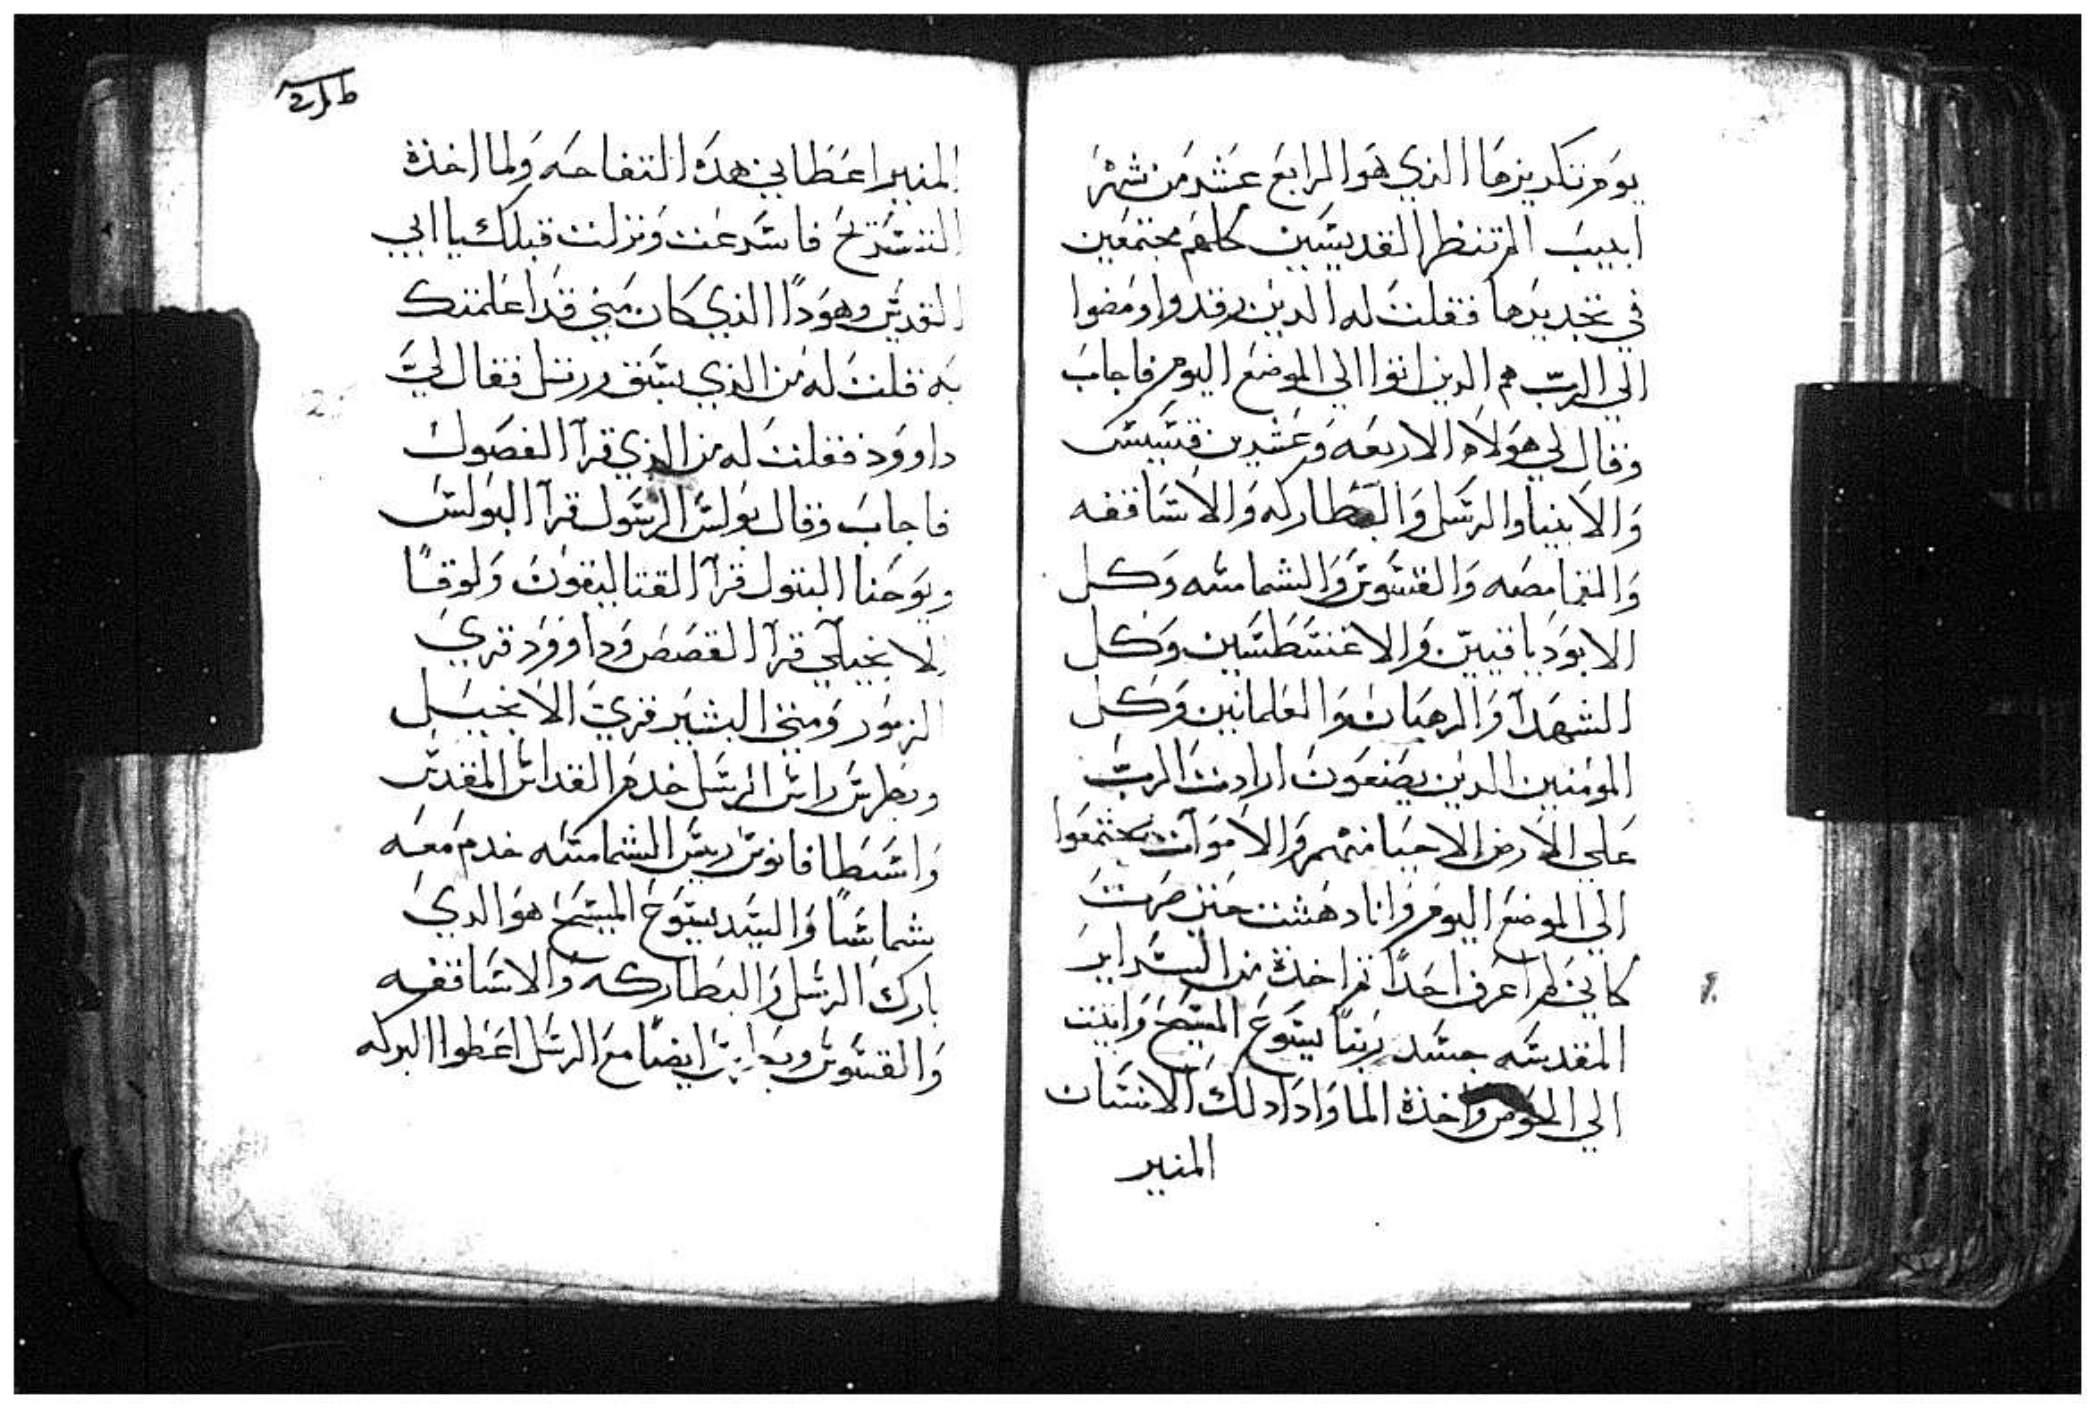 يوم تكريزها الذي هو الرابع عشر من شهر
ابيب المر تنظر القديسين كلهم مجتمعين
في تجديدها فقلت له الدين رقدوا ومضوا
الي الرب هم الدين اتوا الي الموضع اليوم فاجاب
وقال لي هولاء الاربعه وعشرين قسيس
والانبيا والرسل والبطاركه والاساقفه
والقمامصه والقسوس والشمامسه وكل
الابودياقنيين والاغنسطسين وكل
الشهدآ والرهبان والعلمانين وكل
المومنين الدين يصنعون ارادت الرب
علي الارض الاحيا منهم والاموات يجتمعوا
الي الموضع اليوم وانا دهشت حتي صرت
كاني لم اعرف احدًا ثم اخذة من السراير
المقدسه جسد ربنا يسوع المسيح واتيت
الي الحوض واخذة الما وادا دلك الانسان
المنير
المنير اعطاني هده التفاحه ولما اخذة
التسريح فاسرعت ونزلت قبلك يا ابي
القديس وهودا الذي كان مني قد اعلمتك
به قلت له من الذي يسبق ورتل فقال لي
داوود فقلت له من الذي قرآ الفصول
فاجاب وقال بولس الرسول قرآ البولس
ويوحنا البتول قرآ القتاليقون ولوقا
الانجيلي قرآ القصص وداوود قري
الزبور ومتي البشير قري الانجيل
وبطرس راس الرسل خدم القداس المقدس
واسطافانوس ريس الشمامسه خدم معه
شماسًا والسيد يسوع المسيح هو الدي
بارك الرسل والبطاركه والاساقفه
والقسوس وبطرس ايضًا مع الرسل اعطوا البركه